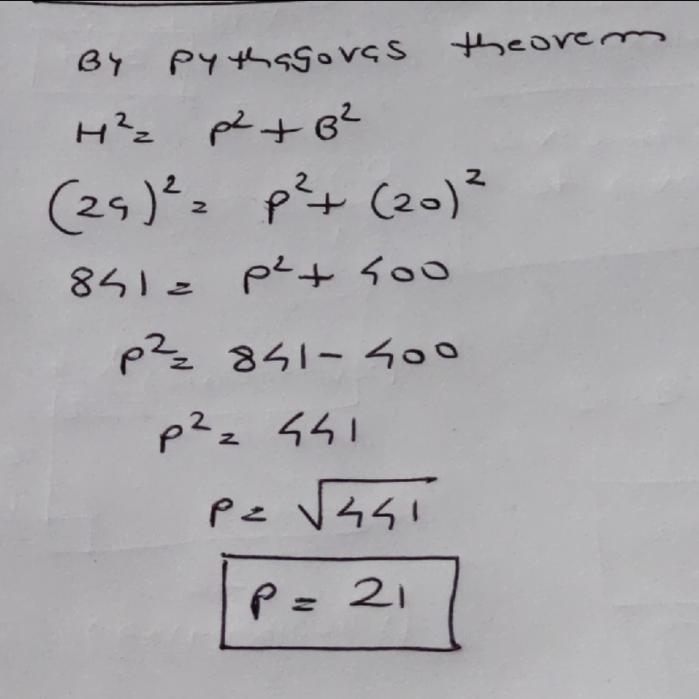 By pythagoras theorem
H² = p² + B²
(29)² = p² + (20)²
841 = p² + 400
p² = 841 - 400
p² = 441
P = √441
P = 21